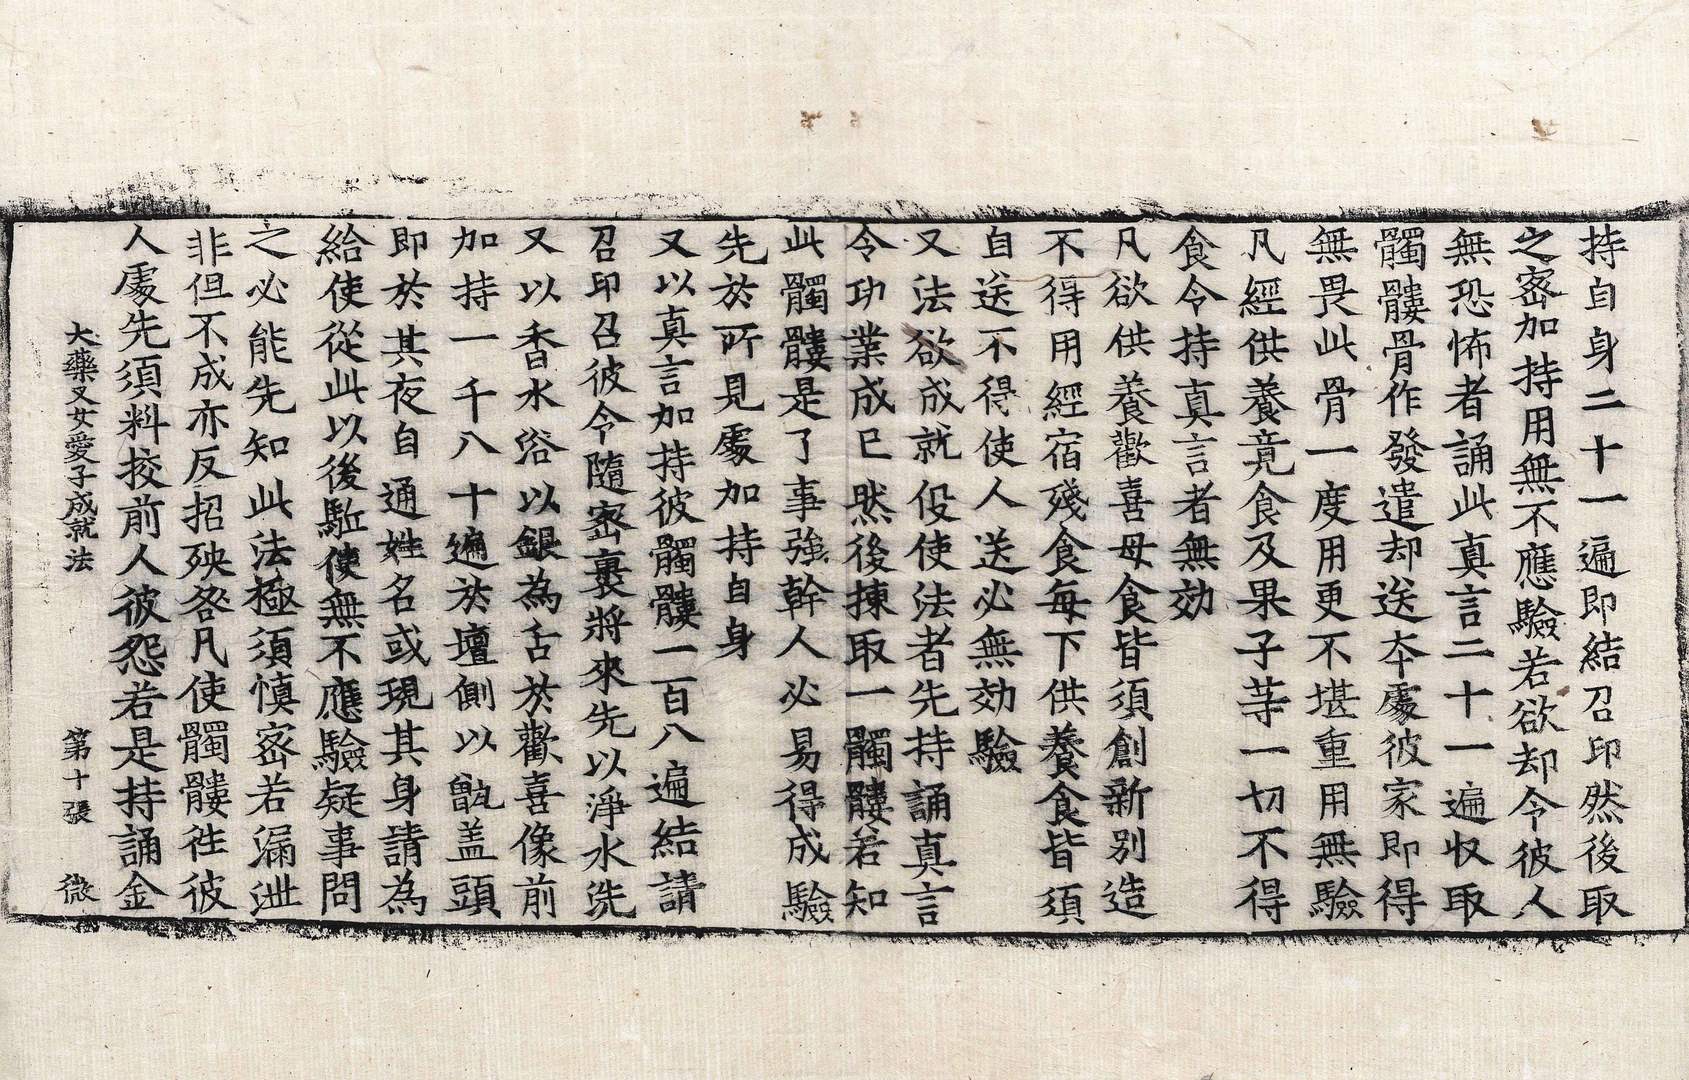 持自身二十一遍即結召印然後取
之密加持用無不應驗若欲却令彼人
無恐怖者誦此真言二十一遍収取
髑髏骨作發遣却送夲處彼家即得
無畏此骨一度用更不堪重用無驗
凡經供養竟食及果子䓁一切不得
食令持真言者無効
凡欲供養歡喜母食皆須創新别造
不得用經宿殘食每下供養食皆須
自送不得使人送必無効驗
又法欲成就伇使法者先持誦真言
令功業成已然後揀取一髑髏若知
此髑髏是了事強幹人必易得成驗
先於所見處加持自身
又以真言加持彼髑髏一百八遍結請
召印召彼令隨密裹將來先以淨水洗
又以香水浴以銀為舌於歡喜像前
加持一千八十遍於壇側以甑盖頭
即於其夜自通姓名或現其身請為
給使從此以後駈使無不應驗疑事問
之必能先知此法極須慎密若漏泄
非但不成亦反招殃咎凡使髑髏徃彼
人處先須料挍前人彼怨若是持誦金
大藥叉女愛子成就法 第十張 微